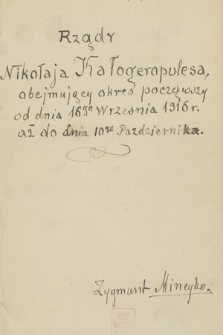 Rządy
Nikołaja Kałogeropulesa,
obejmujący okres począwszy
od dnia 16go Września 1916 r.
aż do dnia 10go Października.
Zygmunt Mineyko.